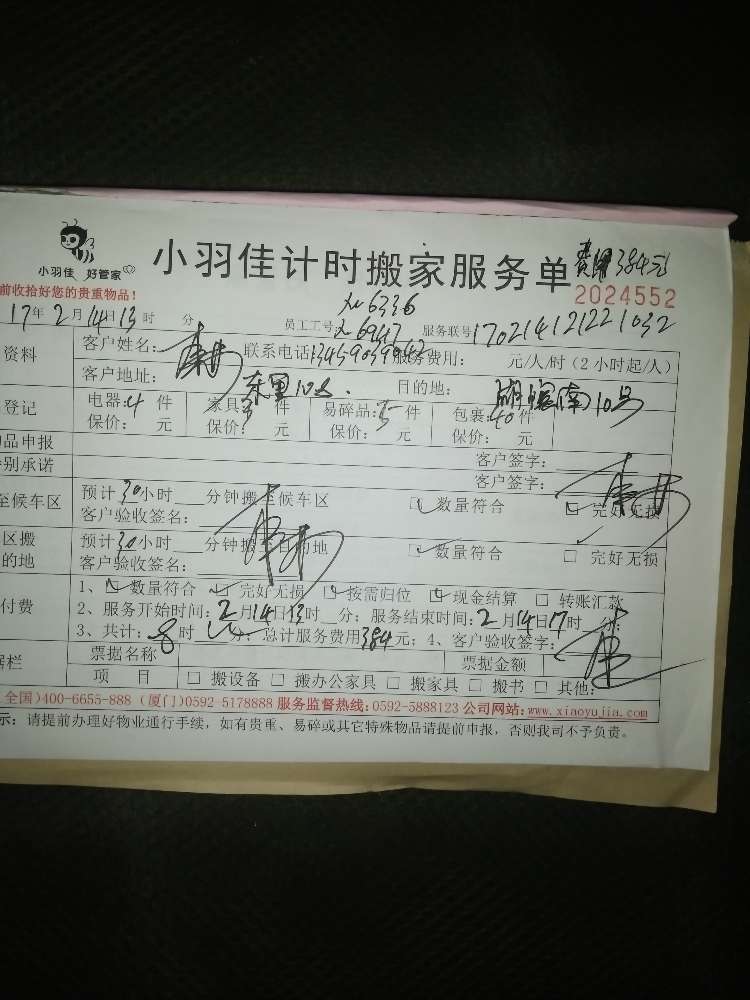 小羽佳 好管家
小羽佳计时搬家服务单 费用384元
前收拾好您的贵重物品！
2024552
6336
17年2月14日13时 分 员工工号: 6947 服务联号170214121221032
资料 客户姓名: 联系电话 服务费用: 元/人/时（2小时起/人）
客户地址: 10 目的地: 南10号
登记 电器:4件 家具 件 易碎品:5件 包裹:40件
保价: 元 保价: 元 保价: 元 保价: 元
品申报 客户签字:
别承诺 客户签字:
至候车区 预计30小时 分钟搬至候车区 ☑数量符合 □完好无损
客户验收签名:
区搬 预计30小时 分钟搬至目的地 ☑数量符合 □完好无损
的地 客户验收签名:
1、☑数量符合 ☑完好无损 ☑按需归位 ☑现金结算 □转账汇款
付费 2、服务开始时间:2月14日13时 分; 服务结束时间:2月14日17时 分;
3、共计:8时 分; 总计服务费用384元; 4、客户验收签字:
据栏 票据名称 票据金额
项 目 □搬设备 □搬办公家具 □搬家具 □搬书 □其他:
全国)400-6655-888 (厦门)0592-5178888 服务监督热线:0592-5888123 公司网站:www.xiaoyujia.com
示: 请提前办理好物业通行手续, 如有贵重、易碎或其它特殊物品请提前申报, 否则我司不予负责。